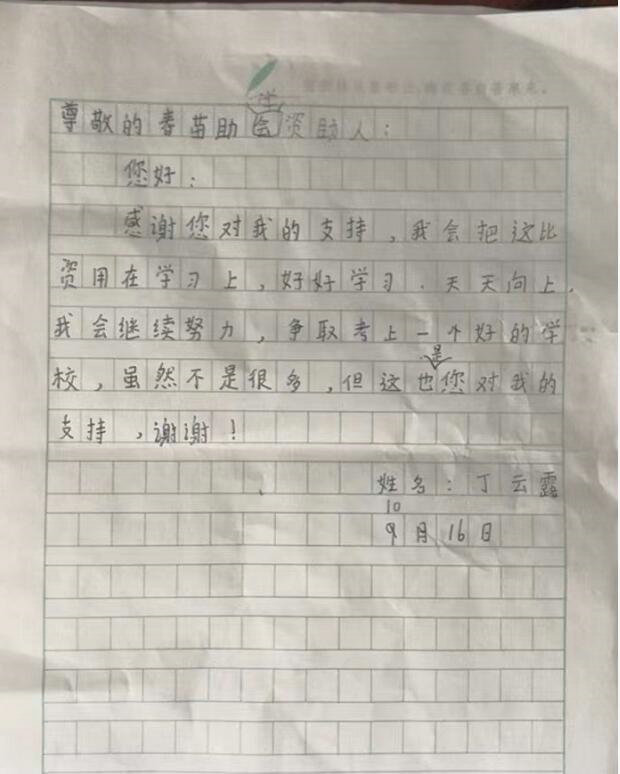 尊敬的春苗助学会资助人：
您好：
感谢您对我的支持，我会把这比
资用在学习上，好好学习．天天向上．
我会继续努力，争取考上一个好的学
校，虽然不是很多，但这也是您对我的
支持，谢谢！
姓名：丁云露
10
9月16日